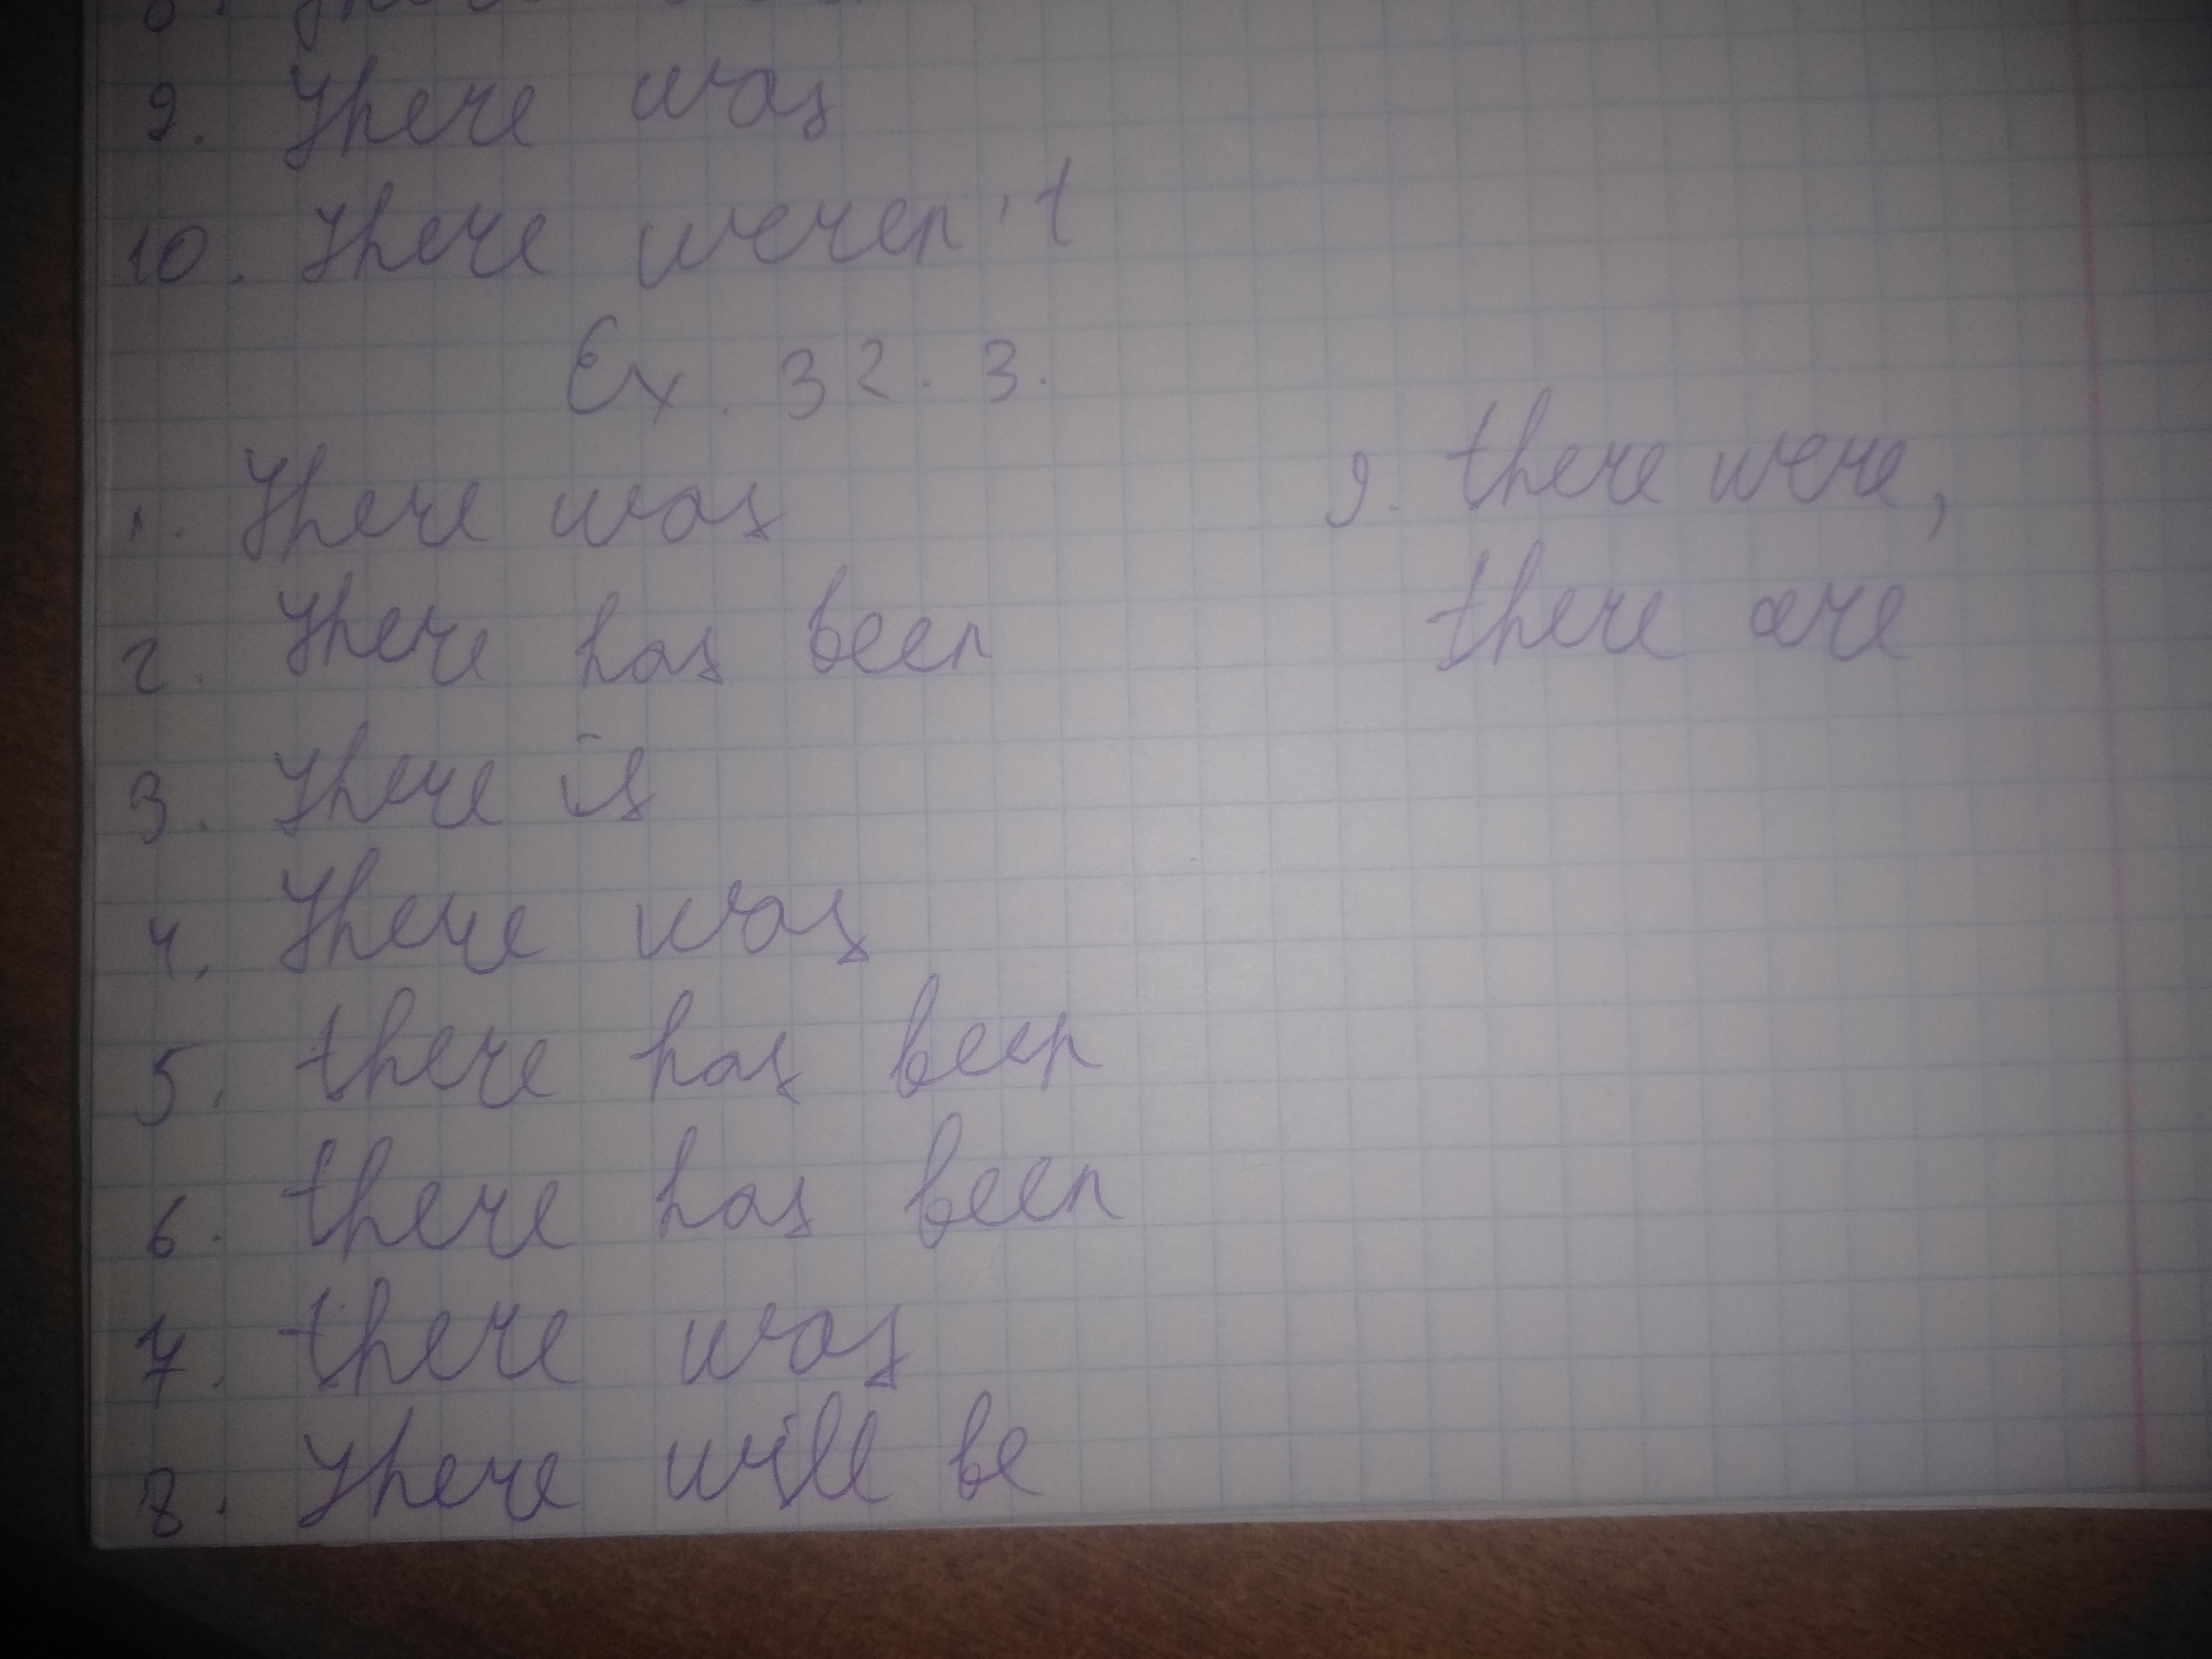 8. There
9. There was
10. There weren't
Ex. 32. 3.
1. There was
2. There has been
3. There is
4. There was
5. there has been
6. there has been
7. there was
8. There will be
9. there were,
there are